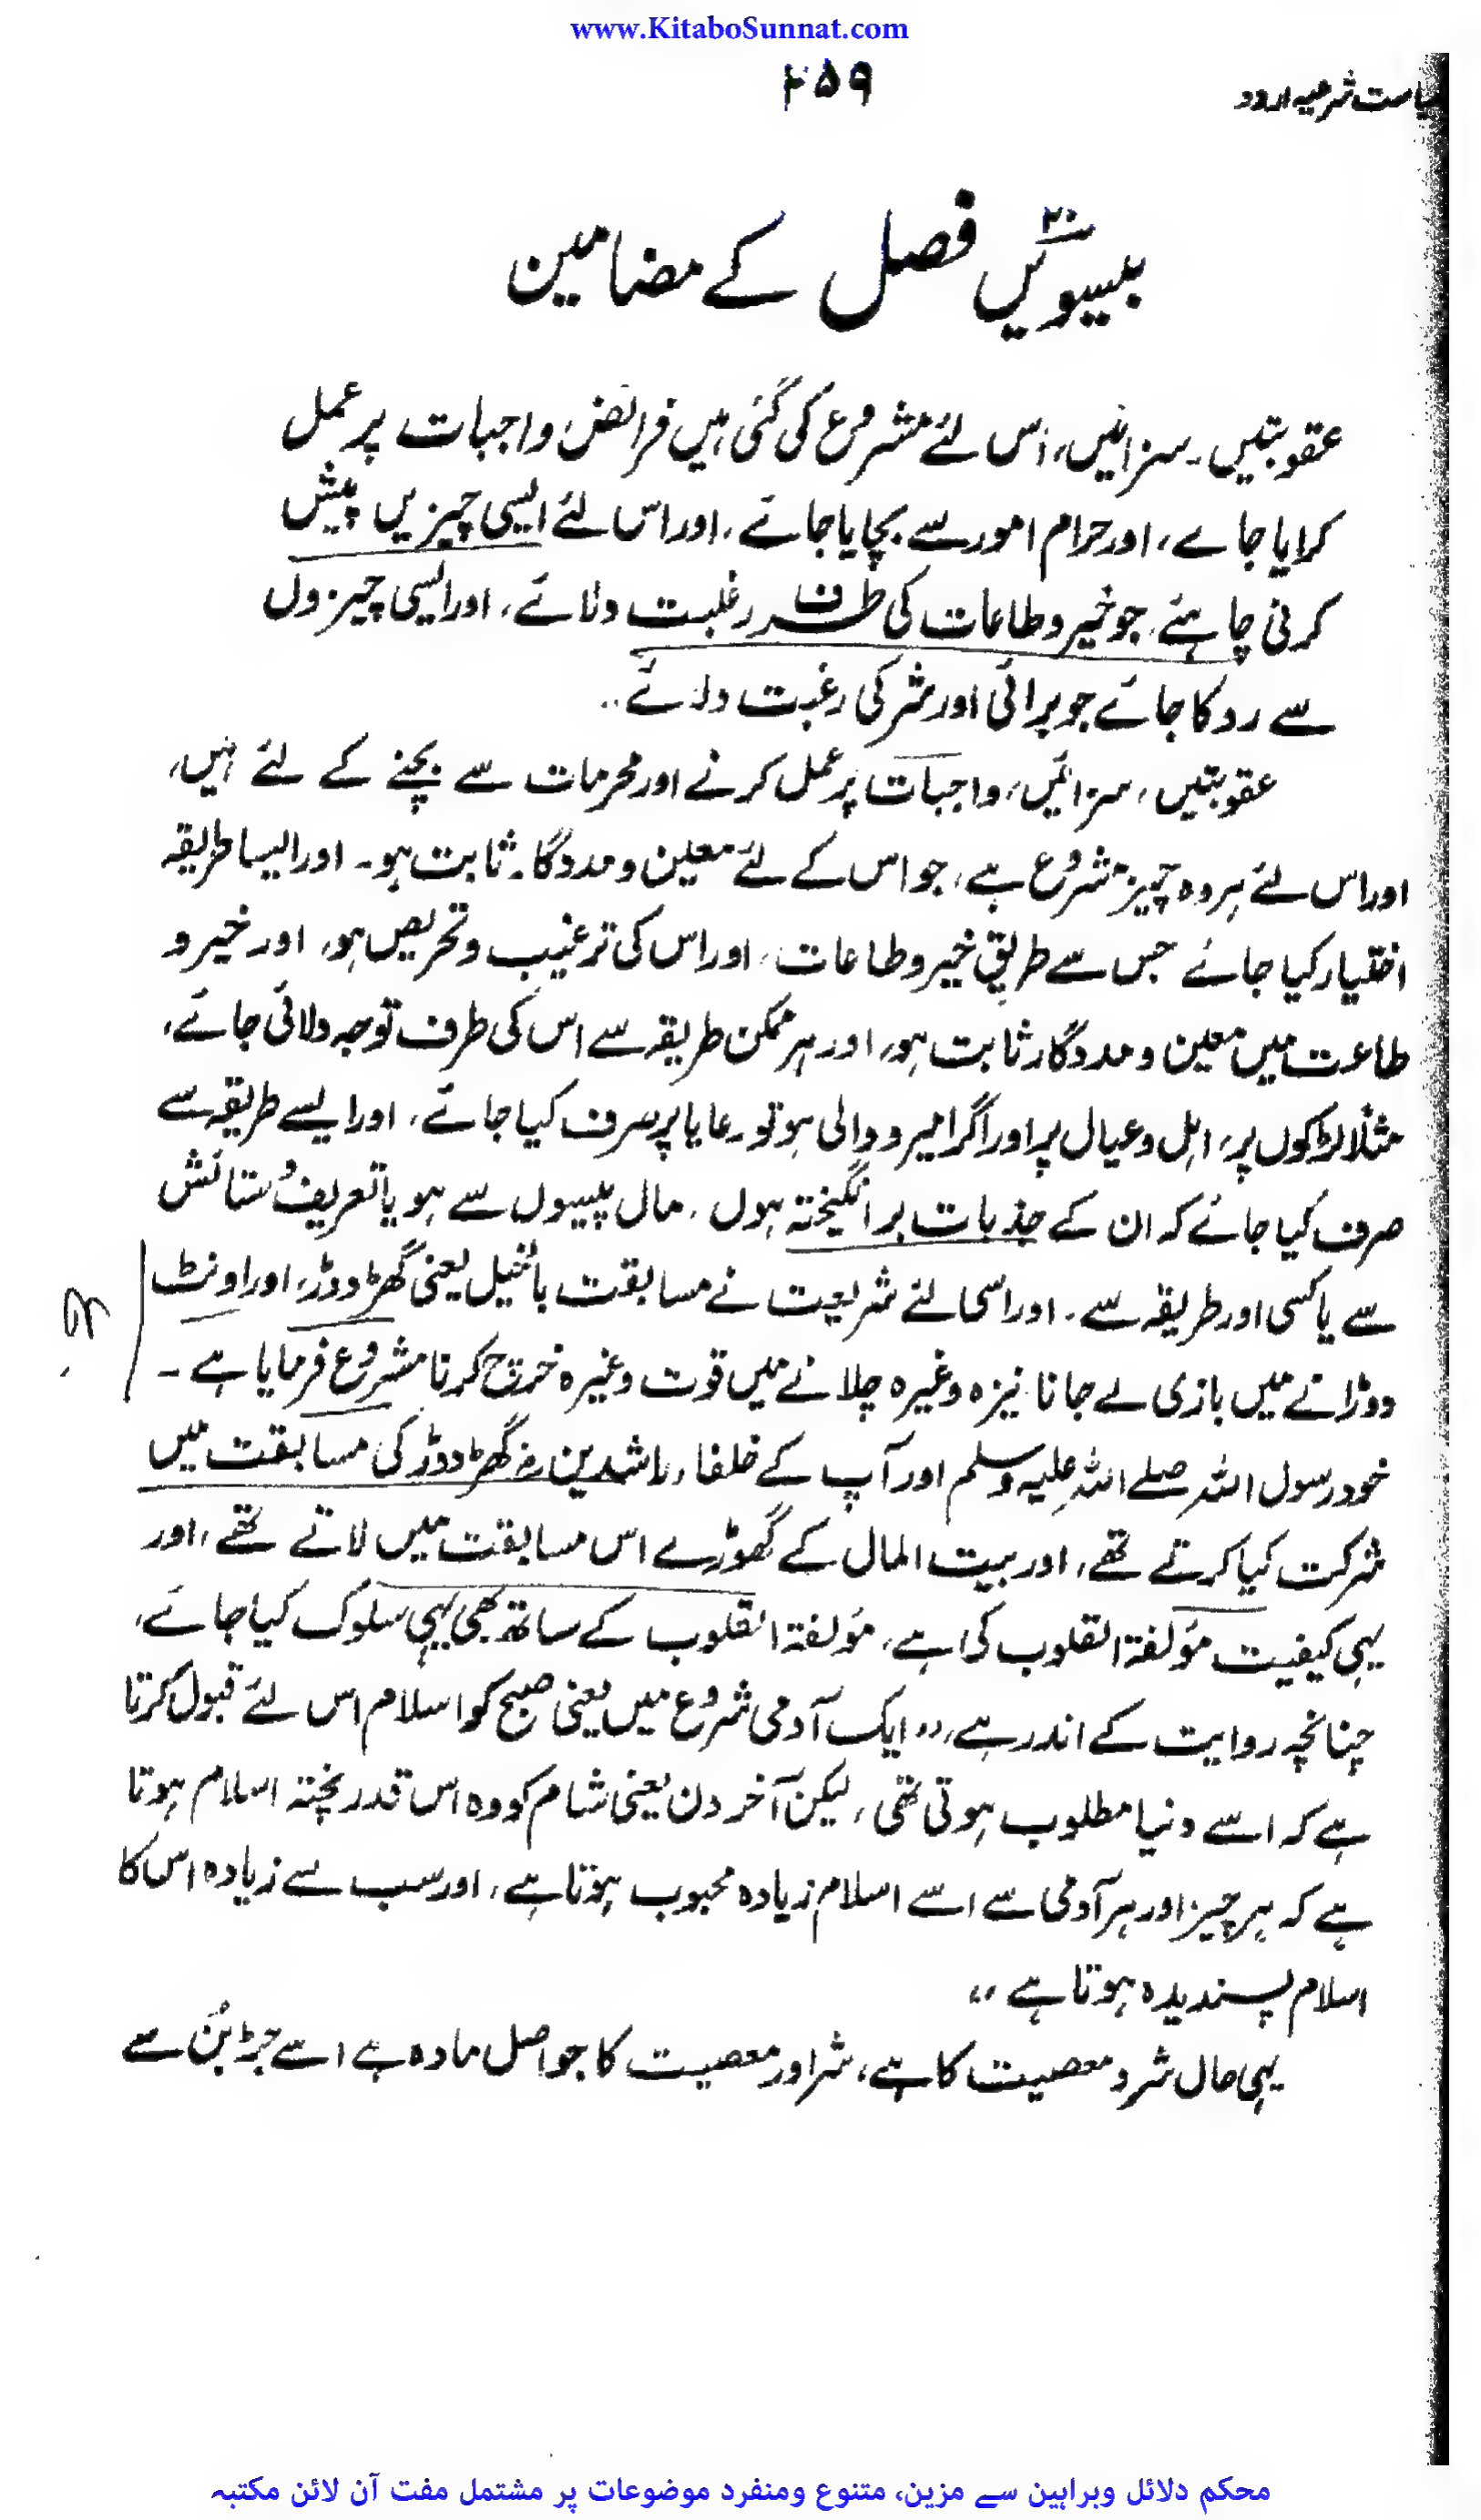 www.KitaboSunnat.com
۲۵۹
سیاست شرعیہ اردو
بیسویں ۲۰ فصل کے مضامین
عقوبتیں۔ سزائیں، اس لئے مشروع کی گئی ہیں فرائض، واجبات پر عمل
کرایا جاے، اور حرام امور سے بچایا جائے، اور اس لئے ایسی چیزیں پیش
کرنی چاہئے، جو خیر و طاعات کی طرف رغبت دلائے، اور ایسی چیزوں
سے روکا جائے جو برائی اور شر کی رغبت دلائے..
عقوبتیں، سزائیں، واجبات پر عمل کرنے اور محرمات سے بچنے کے لئے ہیں،
اور اس لئے ہر وہ چیز مشروع ہے، جو اس کے لئے معین و مددگار ثابت ہو۔ اور ایسا طریقہ
اختیار کیا جائے جس سے طریق خیر و طاعات، اور اس کی ترغیب و تحریص ہو، اور خیر و
طاعت میں معین و مددگار ثابت ہو، اور ہر ممکن طریقہ سے اس کی طرف توجہ دلائی جائے،
مثلاً لڑکوں پر، اہل و عیال پر اور اگر امیر و والی ہو تو رعایا پر صرف کیا جائے، اور ایسے طریقہ سے
صرف کیا جائے کہ ان کے جذبات برانگیختہ ہوں، مال پیسوں سے ہو یا تعریف و ستائش
سے یا کسی اور طریقہ سے، اور اسی لئے شریعت نے مسابقت بالخیل یعنی گھڑ دوڑ، اور اونٹ
دوڑانے میں بازی لے جانا نیزہ وغیرہ چلانے میں قوت وغیرہ خرچ کرنا مشروع فرمایا ہے۔
خود رسول اللہ صلے اللہ علیہ وسلم اور آپ کے خلفاء راشدین رض گھڑ دوڑ کی مسابقت میں
شرکت کیا کرتے تھے، اور بیت المال کے گھوڑے اس مسابقت میں لاتے تھے، اور
یہی کیفیت مؤلفۃ القلوب کی ہے، مؤلفۃ القلوب کے ساتھ بھی یہی سلوک کیا جائے،
چنانچہ روایت کے اندر ہے، ،، ایک آدمی شروع میں یعنی صبح کو اسلام اس لئے قبول کرتا
ہے کہ اسے دنیا مطلوب ہوتی تھی، لیکن آخر دن یعنی شام کو وہ اس قدر پختہ اسلام ہوتا
ہے کہ ہر چیز اور ہر آدمی سے اسے اسلام زیادہ محبوب ہوتا ہے، اور سب سے زیادہ اس کا
اسلام پسندیدہ ہوتا ہے ،،
یہی حال شر و معصیت کا ہے، شر اور معصیت کا جو اصل مادہ ہے اسے جڑ بُن سے
محکم دلائل وبراہین سے مزین، متنوع ومنفرد موضوعات پر مشتمل مفت آن لائن مکتبہ